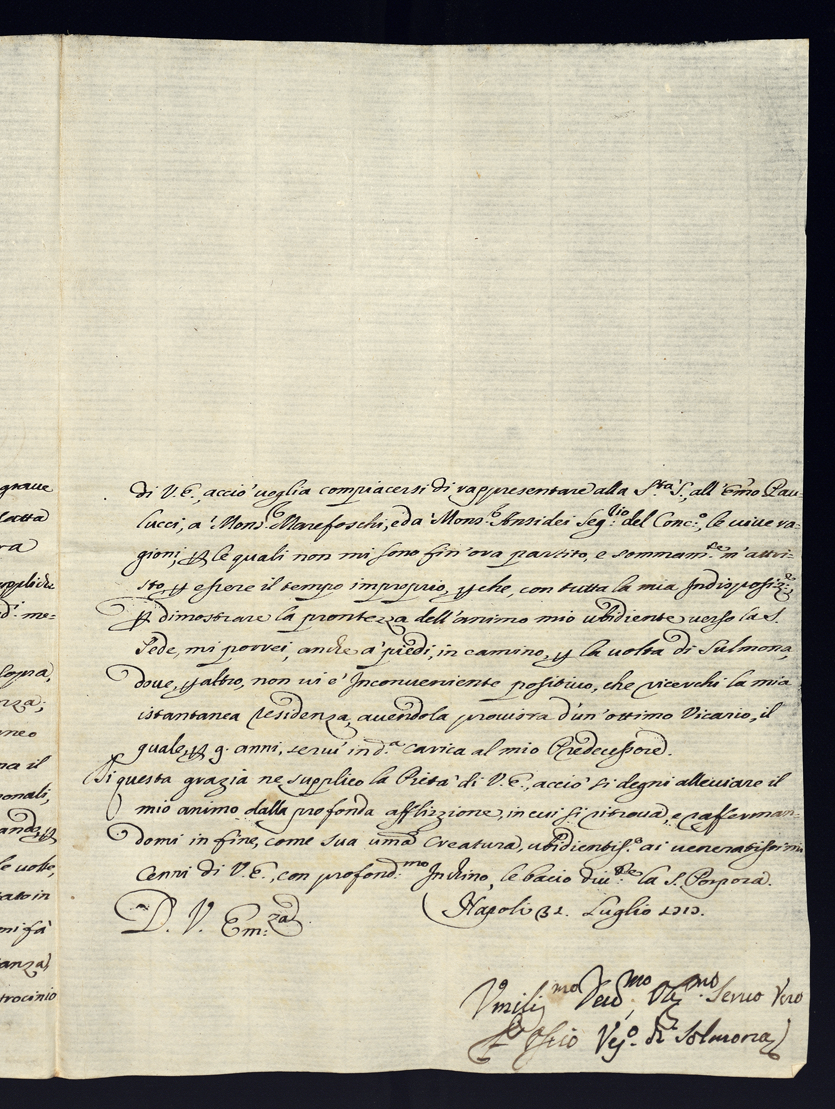 grave
latta
ra
suppliche
d: me-
sopra,
nza;
neo
na il
sonali,
le volte,
tato in
mi fà
anza,
trocinio
di V. E., acciò voglia compiacersi di rappresentare alla S.ta S., all' Emo Pau-
lucci, a' Mons.e Marefoschi, ed a' Mons.e Ansidei Seg.rio del Conc.o, le vive ra-
gioni, ꝑ le quali non mi sono fin' ora partito, e sommam.te m' attri-
sto, ꝑ essere il tempo improprio, ꝑche, con tutta la mia Indisposiz.e
ꝑ dimostrare la prontezza dell' animo mio ubidiente verso la S.
Sede, mi porrei, anche a' piedi, in camino, ꝑ la volta di Sulmona,
dove, ꝑ altro, non vi è Inconveniente positivo, che ricerchi la mia
istantanea residenza, avendola provista d'un' ottimo Vicario, il
quale, ꝑ 9. anni, servì in d.a carica al mio Predecessore.
Di questa grazia ne supplico la Pietà di V. E., acciò si degni alleviare il
mio animo dalla profonda afflizzione, in cui si ritrova, e rafferman-
domi in fine, come sua uma Creatura, ubidientiss.o ai veneratissimi
Cenni di V. E., con profond.mo Inchino, le bacio div.te la S. Porpora.
D. V. Em:za Napoli 31. Luglio
Umiliss.mo Dev.mo Obl.mo Servo Vero
Vesc.o di Solmona